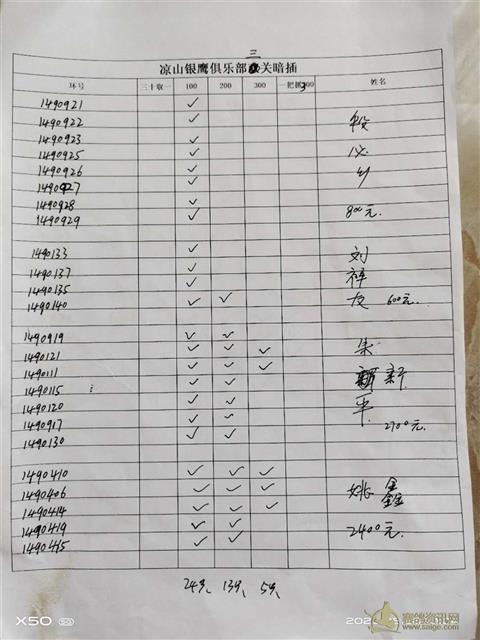 三
凉山银鹰俱乐部关暗插
环号 三十取一 100 200 300 一把抓300 姓名
1490921 ✓
1490922 ✓ 段
1490923 ✓
1490925 ✓ 必
1490926 ✓
1490927 ✓
1490928 ✓
1490929 ✓ 800元.
1490133 ✓ 刘
1490137 ✓ 祥
1490135 ✓
1490140 ✓ ✓ 友 600元.
1490919 ✓ ✓
1490121 ✓ ✓ ✓ 朱
1490111 ✓ ✓ ✓ 新
1490115 ✓ ✓
1490120 ✓ ✓ 平
1490917 ✓ ✓ 2700元.
1490130 ✓ ✓
1490410 ✓ ✓ ✓
1490406 ✓ ✓ ✓ 姚鑫
1490414 ✓ ✓ ✓
1490419 ✓ ✓ 2400元.
1490415 ✓ ✓
24羽、13羽、5羽
X50 5G
赛鸽资讯网
www.saige.com